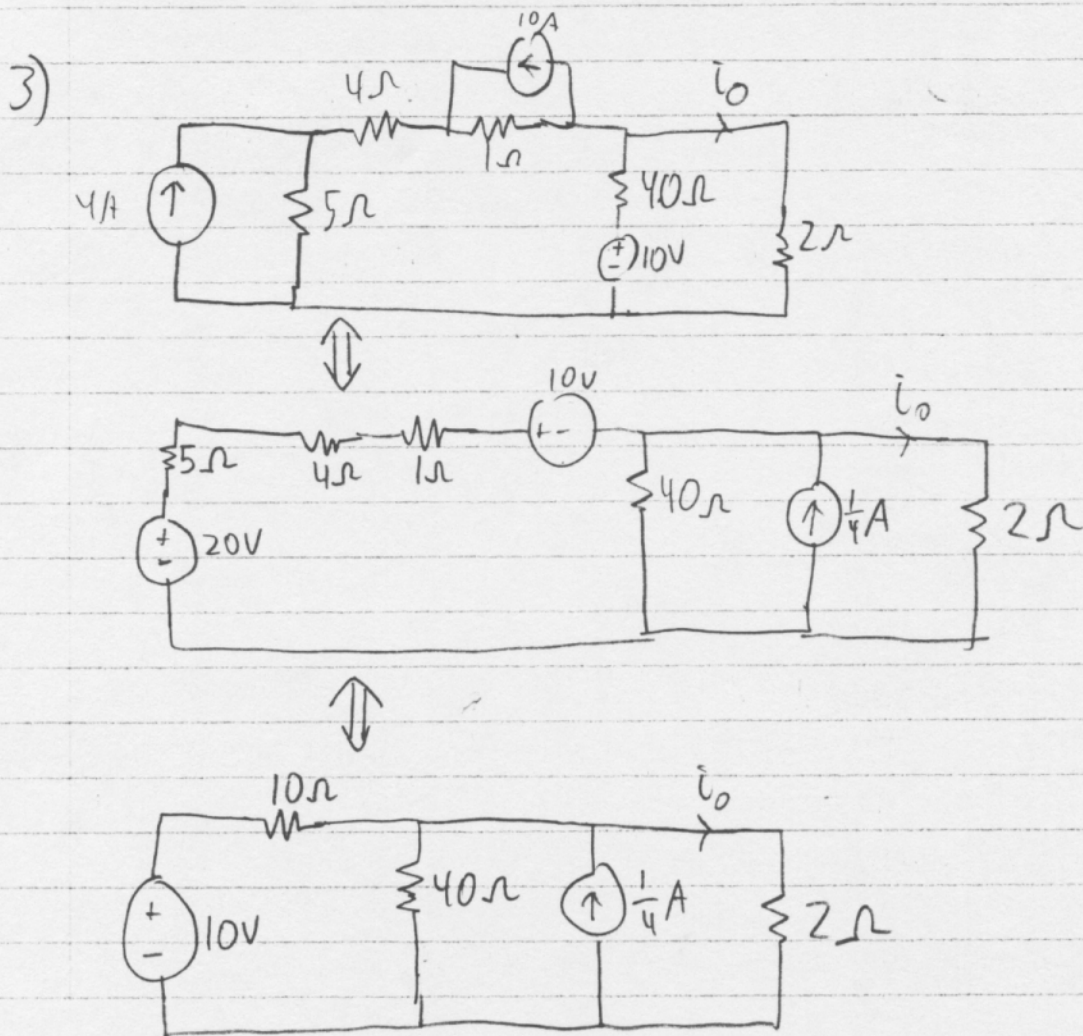 3)
10A
4Ω
1Ω
i₀
4A
5Ω
40Ω
+
-
10V
2Ω
⇕
10V
+ -
i₀
5Ω
4Ω
1Ω
40Ω
1/4 A
2Ω
+
-
20V
⇕
10Ω
i₀
+
-
10V
40Ω
1/4 A
2Ω